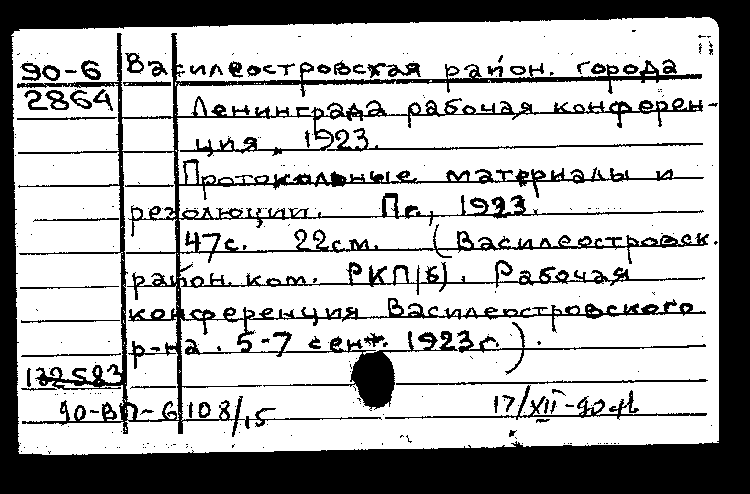 90-6 Василеостровская район. города
2864 Ленинграда рабочая конферен-
ция. 1923.
Протокольные материалы и
резолюции. Пг., 1923.
47с. 22см. (Василеостровск.
район. ком. РКП(б). Рабочая
конференция Василеостровского
р-на. 5-7 сент. 1923г.).
132583
90-ВП-6108/15 17/XII-90